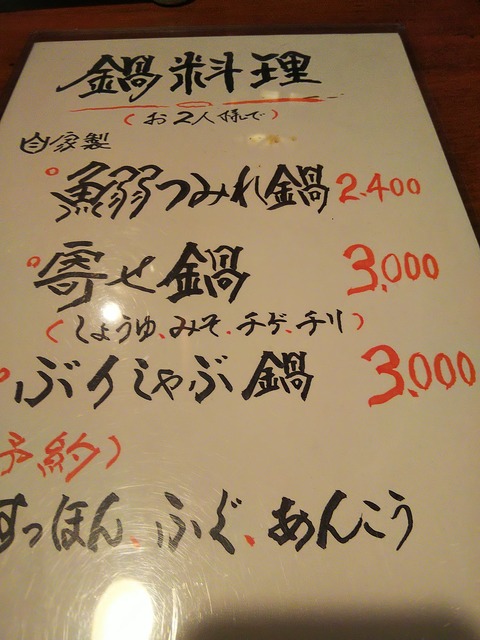 鍋料理
(お2人様で)
自家製
鰯つみれ鍋 2.400
寄せ鍋 3.000
(しょうゆ、みそ、チゲ、チリ)
ぶりしゃぶ鍋 3.000
予約)
すっぽん、ふぐ、あんこう